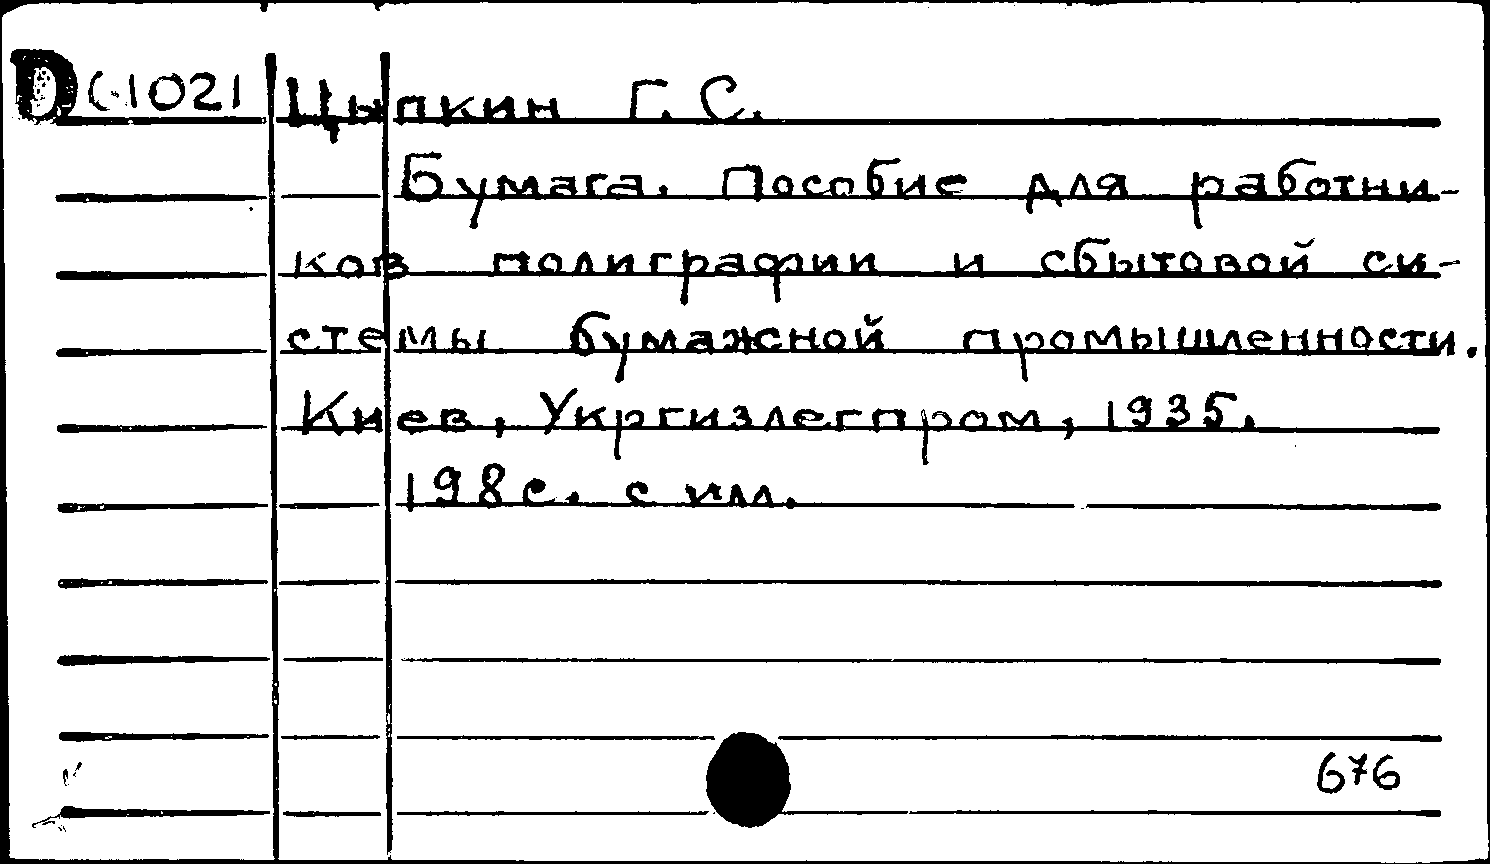 D 1021 Цыпкин Г. С.
Бумага. Пособие для работни-
ков полиграфии и сбытовой си-
стемы бумажной промышленности.
Киев, Укргизлегпром, 1935.
198 с. с илл.
676